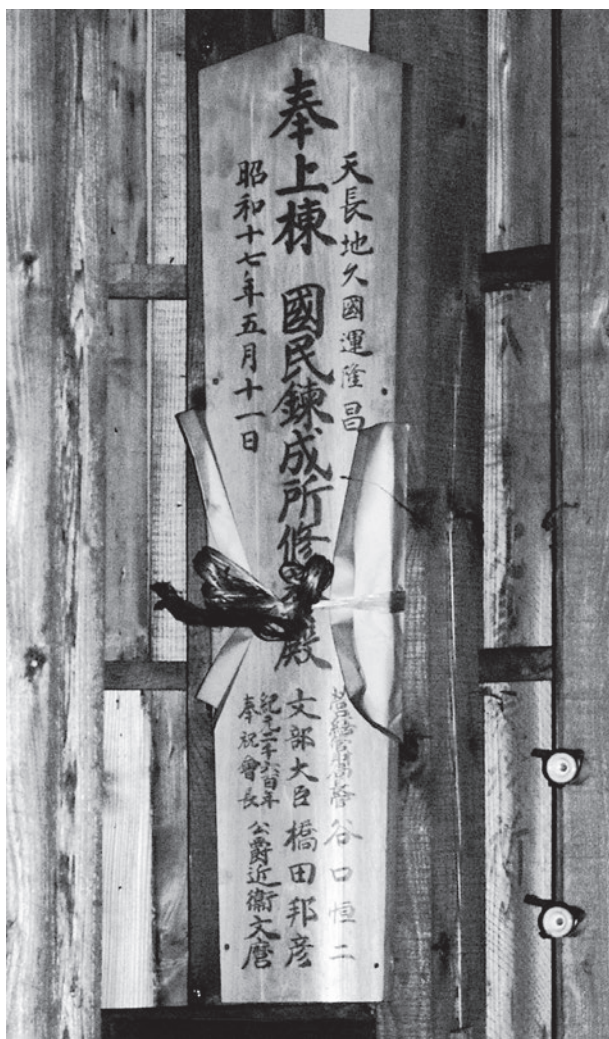 天長地久國運隆昌
奉上棟 國民錬成所修殿
昭和十七年五月十一日
谷口恒二
文部大臣 橋田邦彦
紀元二千六百年
奉祝會長 公爵近衞文麿